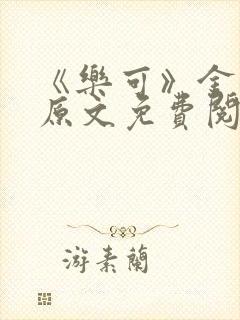 《樂可》金
原文免費閱
游素蘭